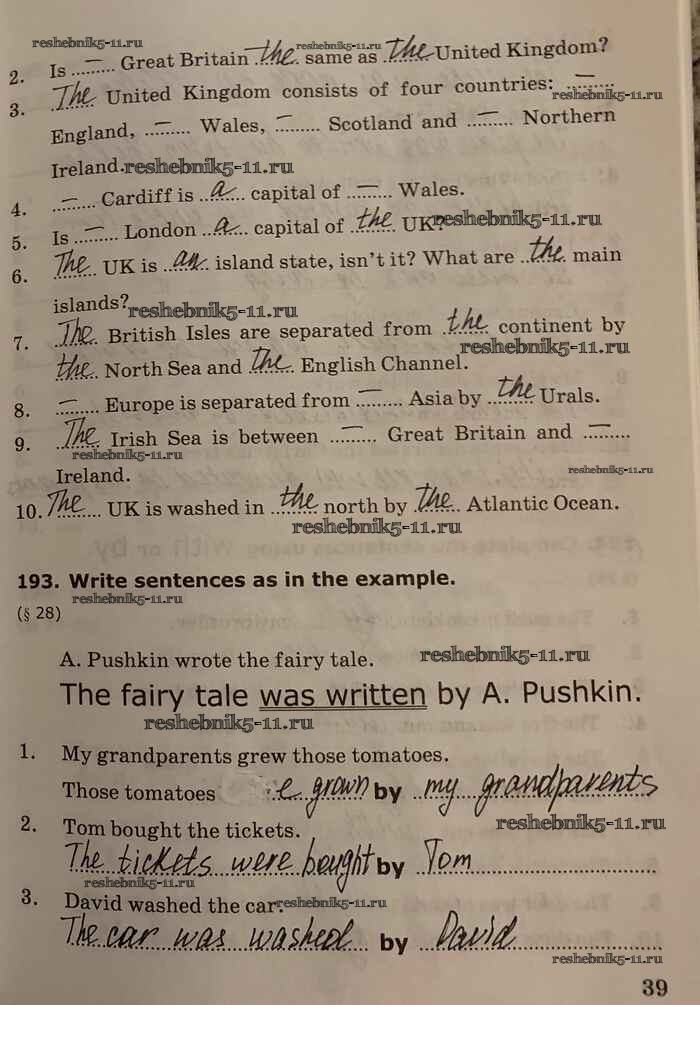 reshebnik5-11.ru reshebnik5-11.ru
2. Is ...—... Great Britain ..the.. same as ..the.. United Kingdom?
3. ..The.. United Kingdom consists of four countries: ...—...
reshebnik5-11.ru
England, ...—... Wales, ...—... Scotland and ...—... Northern
Ireland. reshebnik5-11.ru
4. ...—... Cardiff is ..a.. capital of ...—... Wales.
5. Is ...—... London ..a.. capital of ..the.. UK? reshebnik5-11.ru
6. ..The.. UK is ..an.. island state, isn't it? What are ..the.. main
islands? reshebnik5-11.ru
7. ..The.. British Isles are separated from ..the.. continent by
reshebnik5-11.ru
..the.. North Sea and ..The.. English Channel.
8. ...—... Europe is separated from ...—... Asia by ..the.. Urals.
9. ..The.. Irish Sea is between ...—... Great Britain and ...—...
reshebnik5-11.ru
Ireland. reshebnik5-11.ru
10. ..The.. UK is washed in ..the.. north by ..the.. Atlantic Ocean.
reshebnik5-11.ru
193. Write sentences as in the example.
reshebnik5-11.ru
(§ 28)
A. Pushkin wrote the fairy tale. reshebnik5-11.ru
The fairy tale was written by A. Pushkin.
reshebnik5-11.ru
1. My grandparents grew those tomatoes.
Those tomatoes e grown by my grandparents
reshebnik5-11.ru
2. Tom bought the tickets.
The tickets were bought by Tom
reshebnik5-11.ru
3. David washed the car. reshebnik5-11.ru
The car was washed by David
reshebnik5-11.ru
39